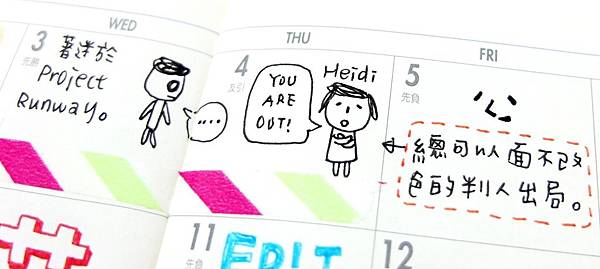 WED
THU
FRI
3
先勝
著迷於
Project
Runway。
....
4
友引
YOU
ARE
OUT!
Heidi
5
先負
總可以面不改
色的判人出局。
11
先負
EDIT
12